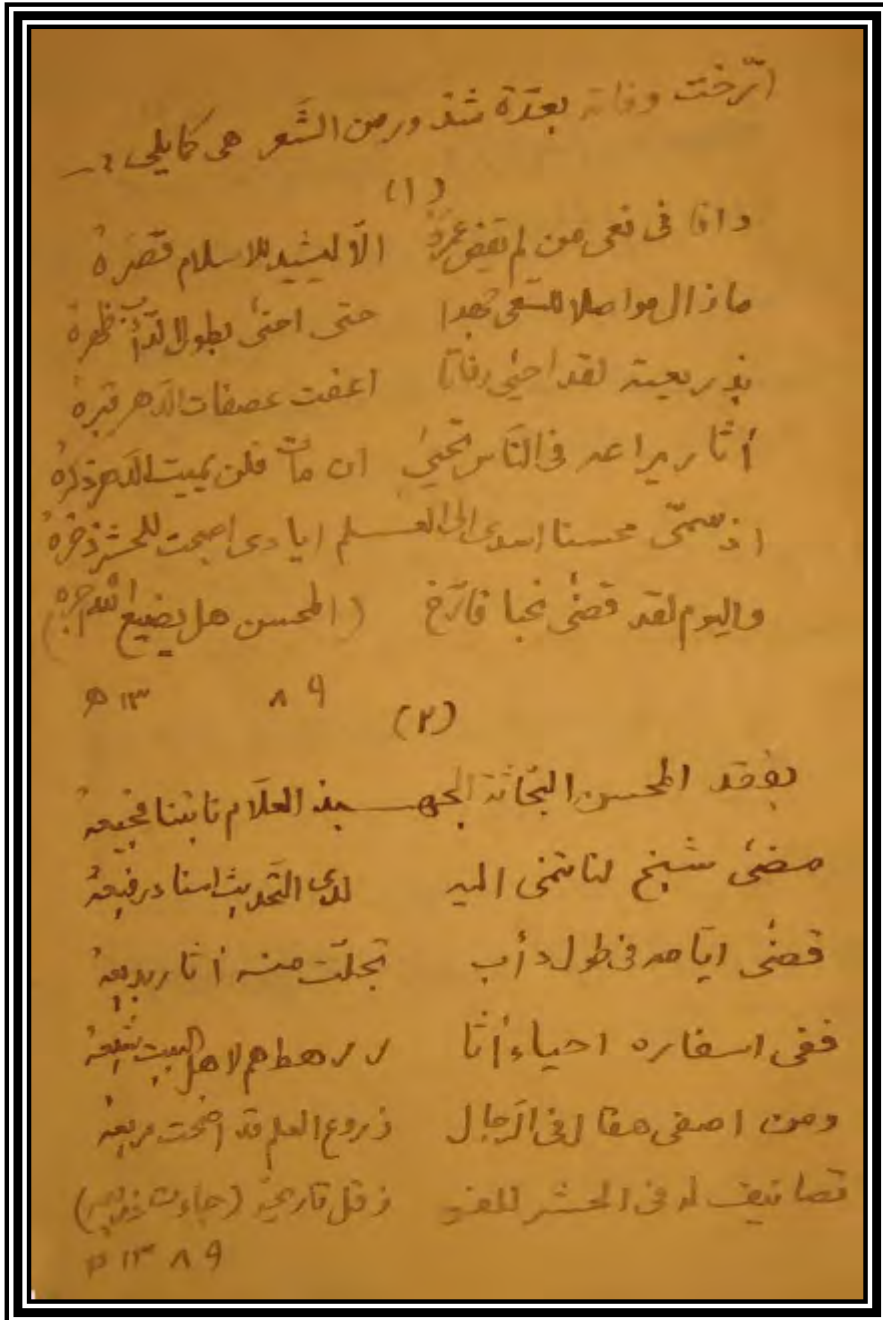 ارّخت وفاته بعدّة شذور من الشَّعر هي كما يلي :ـ
(١)
وافا في نعي من لم يقض عمرهُ الّا ليشيد للاسلام قصرهُ
ما زال مواصلا للسعي جهدا حتى احنىٰ بطول الدّأب ظهرهُ
بذريعته لقد احيٰى رفاتا اعفت عصفات الدّهر قبرهُ
أثار يراعه في النّاس تحييٰ ان مات فلن يميت الدّهر ذكرهُ
اذ سمّي محسنا اسدى الى العـــلم ايادى اصبحت للحشر ذخرهُ
واليوم لقد قضٰى نحبا فأرّخ (المحسن هل يضيع الله اجره)
٨٩ ١٣ ھ
(٢)
بفقد المحسن البحّاثة الجهـــبذ العلّام نابتنا فجيعهُ
مضىٰ شيخ لنا تنمى اليه لدى التّحديث اسناد رفيعهُ
قضٰى ايّامه في طول دأب تجلّت منه أثار بديعهُ
ففي اسفاره احياء أثا ر رهط هم لاهل البيت شيعهُ
ومن اصفى مقال في الرّجال زروع العلم قد اضحت مريعهُ
تصانيف له في الحشر للفو ز قل تاريخهُ (جاءت ذريعه)
١٣٨٩ ھ